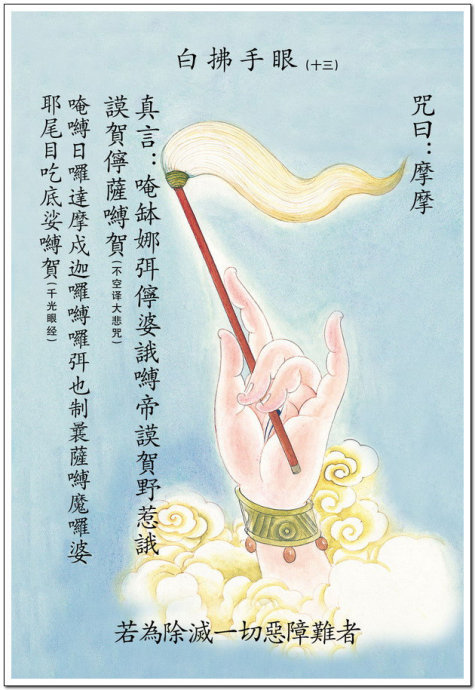 白拂手眼(十三)
咒曰：摩摩
真言：唵缽娜弭儜婆誐嚩帝謨賀野惹誐
謨賀儜薩嚩賀(不空译大悲咒)
唵嚩日囉達摩戍迦囉嚩囉弭也制曩薩嚩魔囉婆
耶尾目吃底娑嚩賀(千光眼经)
若為除滅一切惡障難者